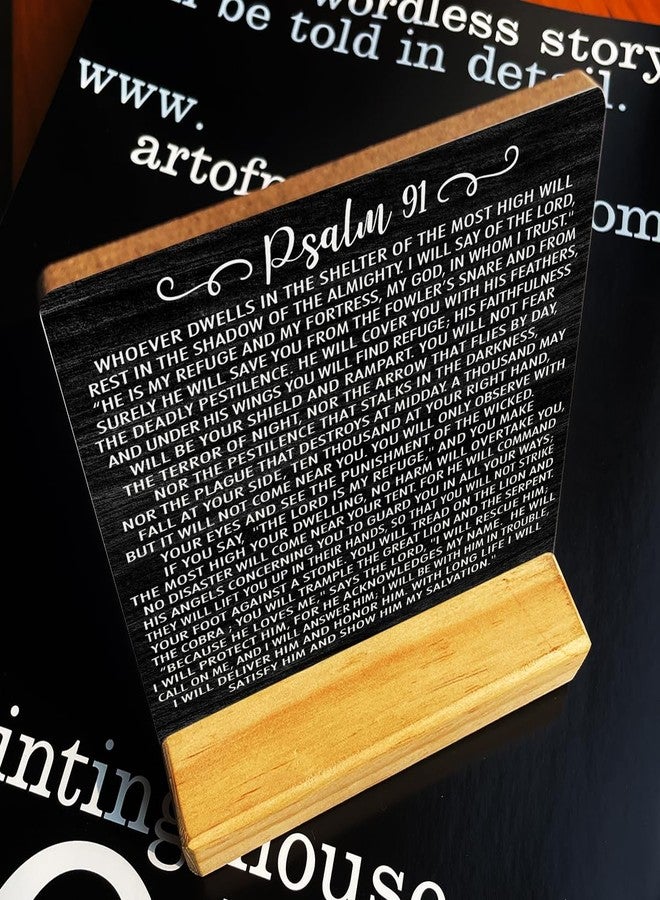 wordless story
be told in detail.
www.
Psalm 91
WHOEVER DWELLS IN THE SHELTER OF THE MOST HIGH WILL
REST IN THE SHADOW OF THE ALMIGHTY. I WILL SAY OF THE LORD,
“HE IS MY REFUGE AND MY FORTRESS, MY GOD, IN WHOM I TRUST.”
SURELY HE WILL SAVE YOU FROM THE FOWLER’S SNARE AND FROM
THE DEADLY PESTILENCE. HE WILL COVER YOU WITH HIS FEATHERS,
AND UNDER HIS WINGS YOU WILL FIND REFUGE; HIS FAITHFULNESS
WILL BE YOUR SHIELD AND RAMPART. YOU WILL NOT FEAR
THE TERROR OF NIGHT, NOR THE ARROW THAT FLIES BY DAY,
NOR THE PESTILENCE THAT STALKS IN THE DARKNESS,
NOR THE PLAGUE THAT DESTROYS AT MIDDAY. A THOUSAND MAY
FALL AT YOUR SIDE, TEN THOUSAND AT YOUR RIGHT HAND,
BUT IT WILL NOT COME NEAR YOU. YOU WILL ONLY OBSERVE WITH
YOUR EYES AND SEE THE PUNISHMENT OF THE WICKED.
IF YOU SAY, “THE LORD IS MY REFUGE,” AND YOU MAKE
THE MOST HIGH YOUR DWELLING, NO HARM WILL OVERTAKE YOU,
NO DISASTER WILL COME NEAR YOUR TENT. FOR HE WILL COMMAND
HIS ANGELS CONCERNING YOU TO GUARD YOU IN ALL YOUR WAYS;
THEY WILL LIFT YOU UP IN THEIR HANDS, SO THAT YOU WILL NOT STRIKE
YOUR FOOT AGAINST A STONE. YOU WILL TREAD ON THE LION AND
THE COBRA; YOU WILL TRAMPLE THE GREAT LION AND THE SERPENT.
“BECAUSE HE LOVES ME,” SAYS THE LORD, “I WILL RESCUE HIM;
I WILL PROTECT HIM, FOR HE ACKNOWLEDGES MY NAME. HE WILL
CALL ON ME, AND I WILL ANSWER HIM; I WILL BE WITH HIM IN TROUBLE,
I WILL DELIVER HIM AND HONOR HIM. WITH LONG LIFE I WILL
SATISFY HIM AND SHOW HIM MY SALVATION.”
house